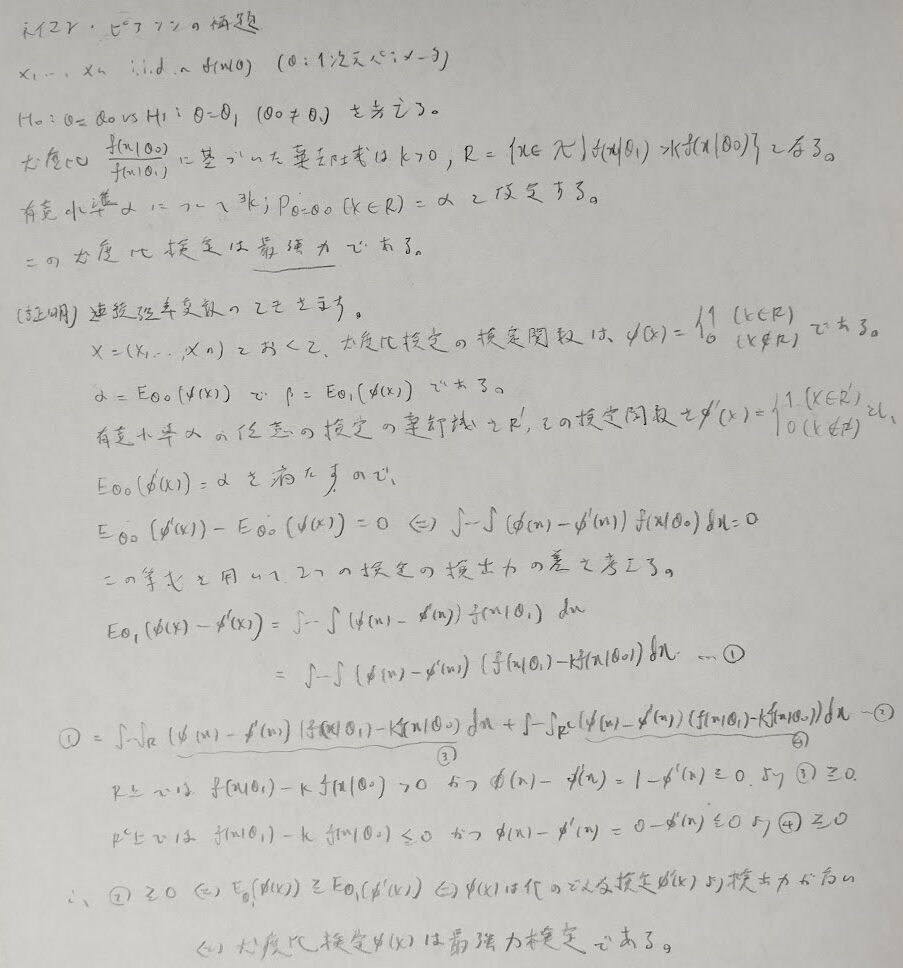 ネイマン・ピアソンの補題
X₁, …, Xₙ i.i.d. ~ f(x|θ) (θ:1次元パラメータ)
H₀:θ=θ₀ vs H₁:θ=θ₁ (θ₀≠θ₁) を考える。
尤度比 f(x|θ₀)/f(x|θ₁) に基づいた棄却域は k>0, R={x∈χ | f(x|θ₁)>kf(x|θ₀)} となる。
有意水準αについて ∃k; P_{θ=θ₀}(X∈R)=α と仮定する。
この尤度比検定は最強力である。
(証明) 連続確率変数のときを示す。
X=(X₁, …, Xₙ) とおくと、尤度比検定の検定関数は、φ(x)={1 (X∈R) 0 (X∉R) である。
α=E_{θ₀}(φ(X)) で β=E_{θ₁}(φ(X)) である。
有意水準αの任意の検定の棄却域をR', その検定関数をφ'(x)={1 (X∈R') 0 (X∉R') とし、
E_{θ₀}(φ'(X))=α を満たすので、
E_{θ₀}(φ'(X))-E_{θ₀}(φ(X))=0 ⇔ ∫…∫(φ(x)-φ'(x)) f(x|θ₀) dx=0
この等式を用いて、2つの検定の検出力の差を考える。
E_{θ₁}(φ(X)-φ'(X)) = ∫…∫(φ(x)-φ'(x)) f(x|θ₁) dx
= ∫…∫(φ(x)-φ'(x)) (f(x|θ₁)-kf(x|θ₀)) dx … ①
①=∫…∫_R (φ(x)-φ'(x)) (f(x|θ₁)-kf(x|θ₀)) dx + ∫…∫_{Rᶜ} (φ(x)-φ'(x)) (f(x|θ₁)-kf(x|θ₀)) dx …②
③ ④
R上では f(x|θ₁)-kf(x|θ₀)>0 かつ φ(x)-φ'(x)=1-φ'(x)≧0 より ③≧0.
Rᶜ上では f(x|θ₁)-kf(x|θ₀)≦0 かつ φ(x)-φ'(x)=0-φ'(x)≦0 より ④≧0
∴ ②≧0 ⇔ E_{θ₁}(φ(X))≧E_{θ₁}(φ'(X)) ⇔ φ(X)は他のどんな検定φ'(X)より検出力が高い
⇔ 尤度比検定φ(X)は最強力検定である。